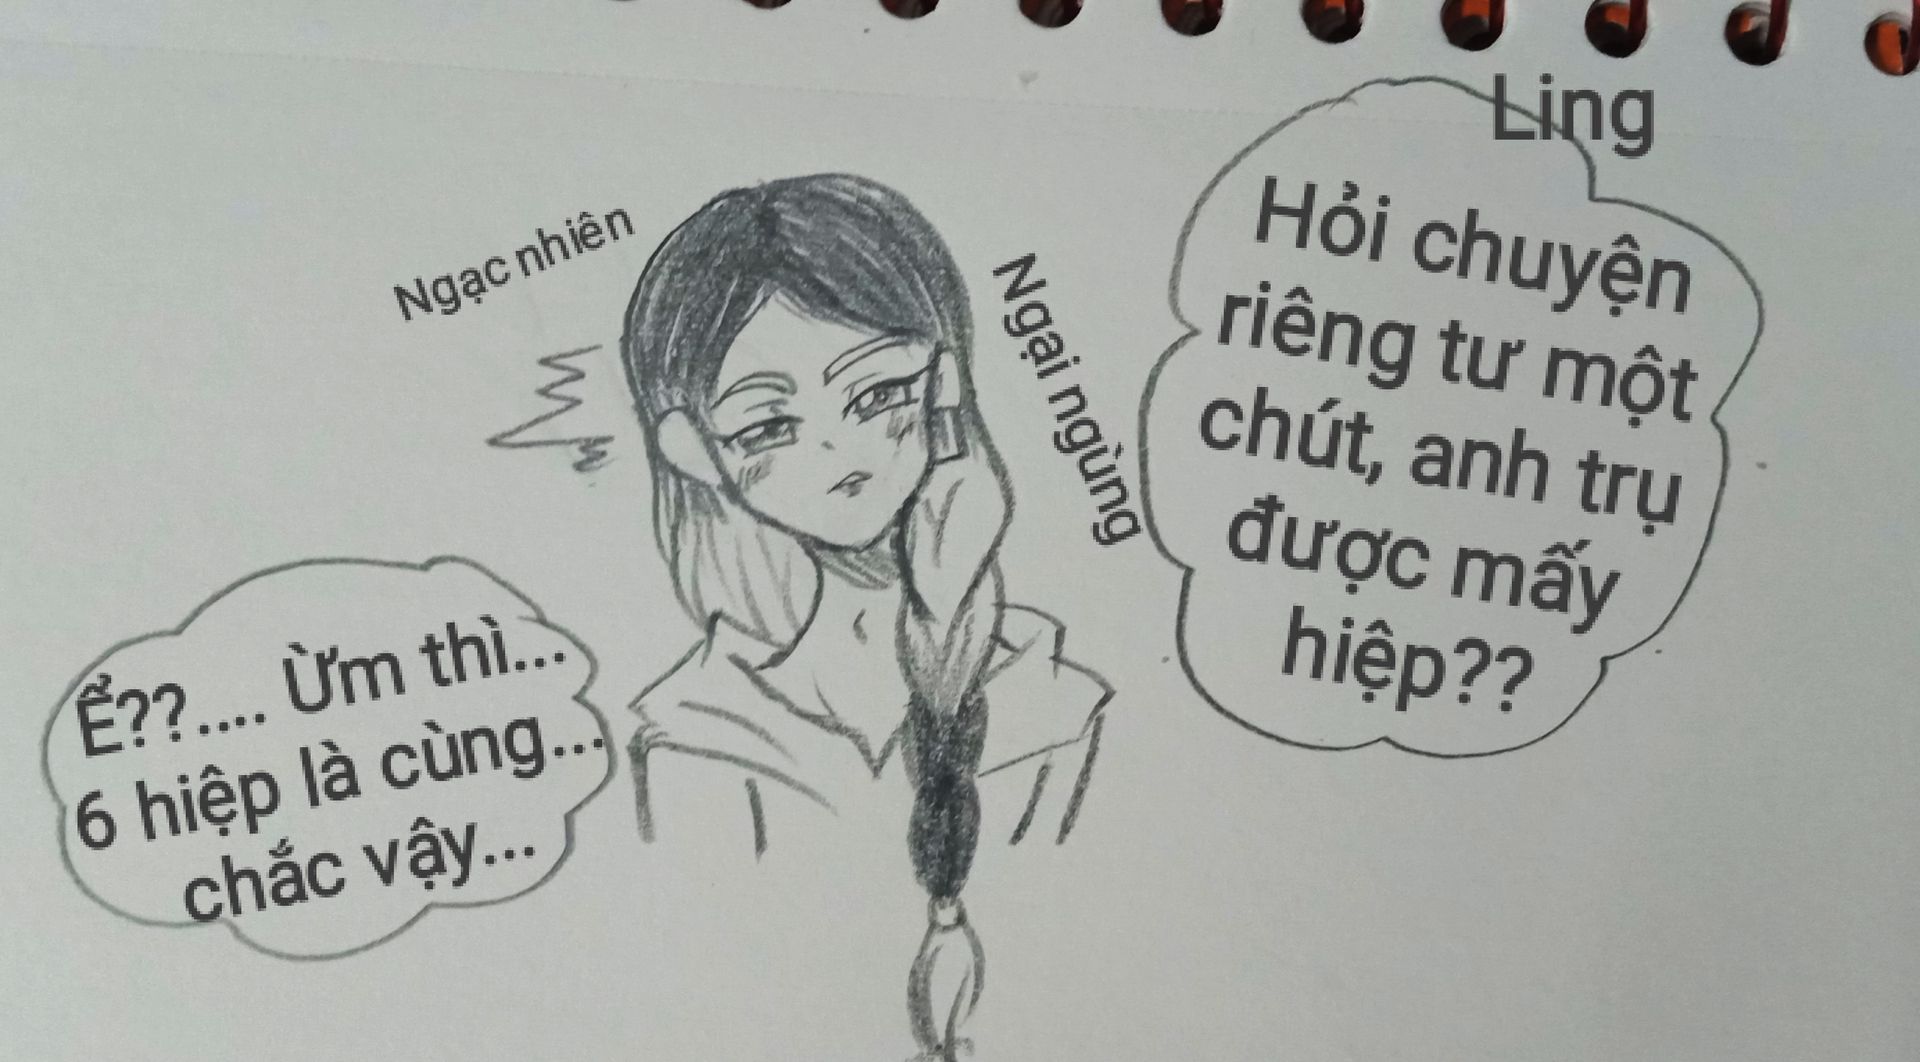 Ling
Hỏi chuyện
riêng tư một
chút, anh trụ
được mấy
hiệp??
Ngạc nhiên
Ngại ngùng
Ể??.... Ừm thì...
6 hiệp là cùng...
chắc vậy...